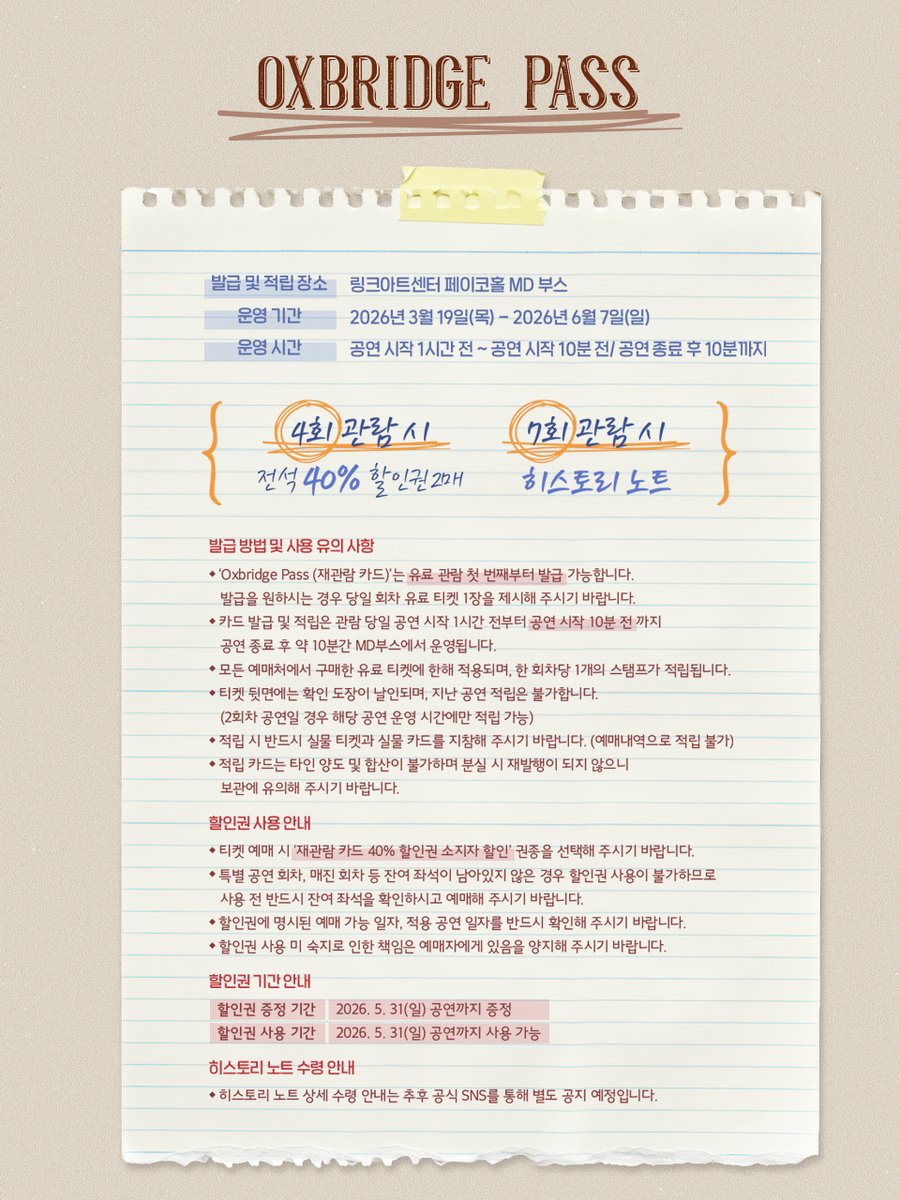 OXBRIDGE PASS
발급 및 적립 장소 링크아트센터 페이코홀 MD 부스
운영 기간 2026년 3월 19일(목) – 2026년 6월 7일(일)
운영 시간 공연 시작 1시간 전 ~ 공연 시작 10분 전/ 공연 종료 후 10분까지
4회 관람 시 7회 관람 시
전석 40% 할인권 2매 히스토리 노트
발급 방법 및 사용 유의 사항
◆ ‘Oxbridge Pass (재관람 카드)’는 유료 관람 첫 번째부터 발급 가능합니다.
발급을 원하시는 경우 당일 회차 유료 티켓 1장을 제시해 주시기 바랍니다.
◆ 카드 발급 및 적립은 관람 당일 공연 시작 1시간 전부터 공연 시작 10분 전 까지
공연 종료 후 약 10분간 MD부스에서 운영됩니다.
◆ 모든 예매처에서 구매한 유료 티켓에 한해 적용되며, 한 회차당 1개의 스탬프가 적립됩니다.
◆ 티켓 뒷면에는 확인 도장이 날인되며, 지난 공연 적립은 불가합니다.
(2회차 공연일 경우 해당 공연 운영 시간에만 적립 가능)
◆ 적립 시 반드시 실물 티켓과 실물 카드를 지참해 주시기 바랍니다. (예매내역으로 적립 불가)
◆ 적립 카드는 타인 양도 및 합산이 불가하며 분실 시 재발행이 되지 않으니
보관에 유의해 주시기 바랍니다.
할인권 사용 안내
◆ 티켓 예매 시 ‘재관람 카드 40% 할인권 소지자 할인’ 권종을 선택해 주시기 바랍니다.
◆ 특별 공연 회차, 매진 회차 등 잔여 좌석이 남아있지 않은 경우 할인권 사용이 불가하므로
사용 전 반드시 잔여 좌석을 확인하시고 예매해 주시기 바랍니다.
◆ 할인권에 명시된 예매 가능 일자, 적용 공연 일자를 반드시 확인해 주시기 바랍니다.
◆ 할인권 사용 미 숙지로 인한 책임은 예매자에게 있음을 양지해 주시기 바랍니다.
할인권 기간 안내
할인권 증정 기간 2026. 5. 31(일) 공연까지 증정
할인권 사용 기간 2026. 5. 31(일) 공연까지 사용 가능
히스토리 노트 수령 안내
◆ 히스토리 노트 상세 수령 안내는 추후 공식 SNS를 통해 별도 공지 예정입니다.